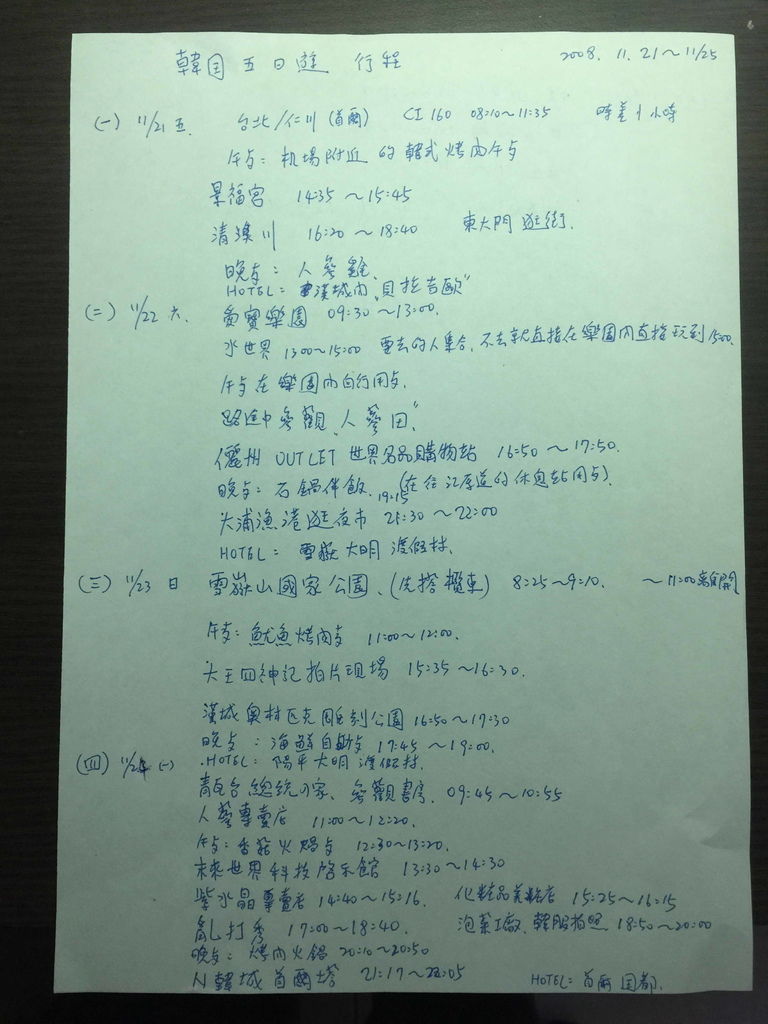 韓国五日遊 行程 2008. 11. 21~11/25
(一) 11/21 五. 台北/仁川 (首爾) CI 160 08:10~11:35 時差1小時
午歺: 机場附近的韓式烤肉午歺
景福宮 14:35~15:45
清溪川 16:20~18:40 東大門逛街.
晚歺: 人參雞.
HOTEL: 漢城內"貝拉吉歐"
(二) 11/22 六. 愛寶樂園 09:30~13:00.
水世界 13:00~15:00 要去的人集合. 不去就直接在樂園內直接玩到15:00.
午歺在樂園內自行用歺.
路途中參觀"人蔘田"
儷州 OUTLET 世界名品購物站 16:50~17:50.
晚歺: 石鍋伴飯. 19:15 (在往江原道的休息站用歺)
大浦漁港逛夜市 21:30~22:00
HOTEL: 雪嶽大明渡假村.
(三) 11/23 日 雪嶽山國家公園. (先搭纜車) 8:25~9:10. ~11:00離開
午歺: 魷魚烤肉歺 11:00~12:00.
大王四神記拍片現場 15:35~16:30.
漢城奧林匹克雕刻公園 16:50~17:30
晚歺: 海鮮自助歺 17:45~19:00.
.HOTEL: 陽平大明渡假村.
(四) 11/24 (一)
青瓦台總統の家. 參觀書房. 09:45~10:55
人蔘專賣店 11:00~12:20.
午歺: 香菇火鍋歺 12:30~13:20.
未來世界科技啓示館 13:30~14:30
紫水晶專賣店 14:40~15:16. 化粧品美粧店 15:25~16:15
亂打秀 17:00~18:40. 泡菜工廠. 韓服拍照 18:50~20:00
晚歺: 烤肉火鍋 20:10~20:50
N韓城首爾塔 21:17~22:05 HOTEL: 首爾国都.